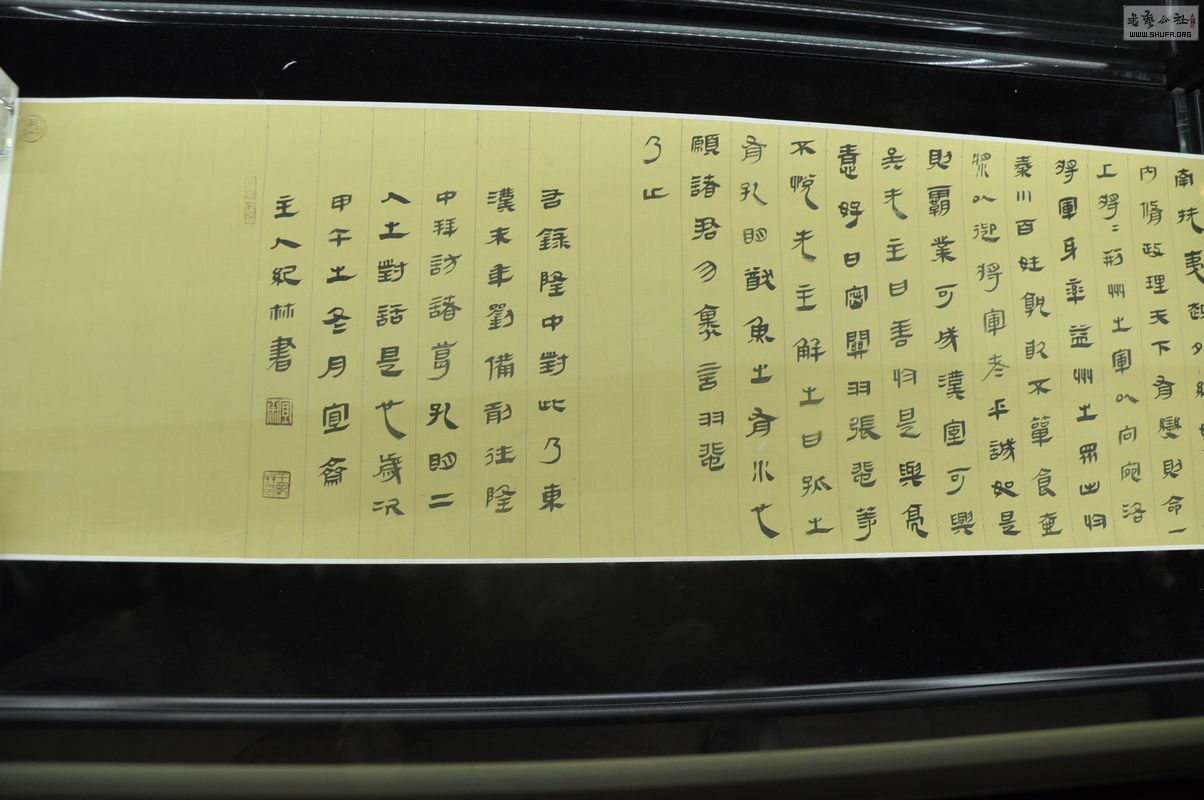 南撫夷越外結好
內脩政理天下有變則命一
上將〻荊州之軍以向宛洛
將軍身率益州之眾出於
秦川百姓孰敢不簞食壺
漿以迎將軍者乎誠如是
則霸業可成漢室可興
矣先主曰善於是與亮
情好日密關羽張蜚等
不悅先主解之曰孤之
有孔明猷魚之有水也
願諸君勿復言羽蜚
乃止
右錄隆中對此乃東
漢末年劉備前往隆
中拜訪諸葛孔明二
人之對話是也歲次
甲午之冬月宜齋
主人紀林書
書藝公社
WWW.SHUFA.ORG